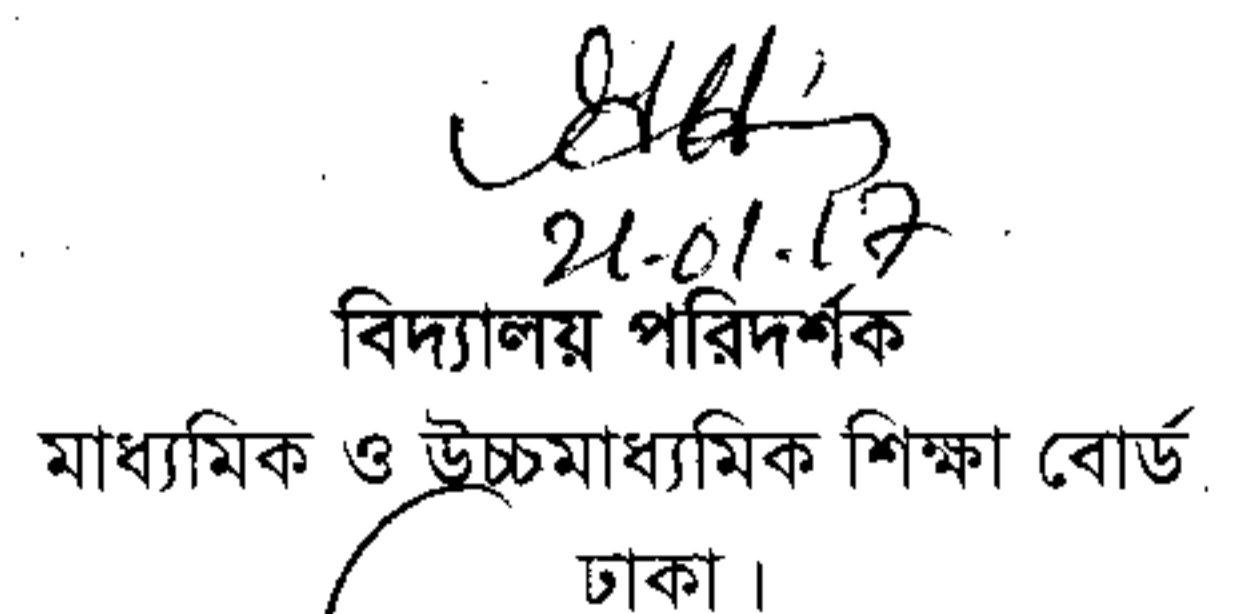 21-01-17
বিদ্যালয় পরিদর্শক
মাধ্যমিক ও উচ্চমাধ্যমিক শিক্ষা বোর্ড
ঢাকা।